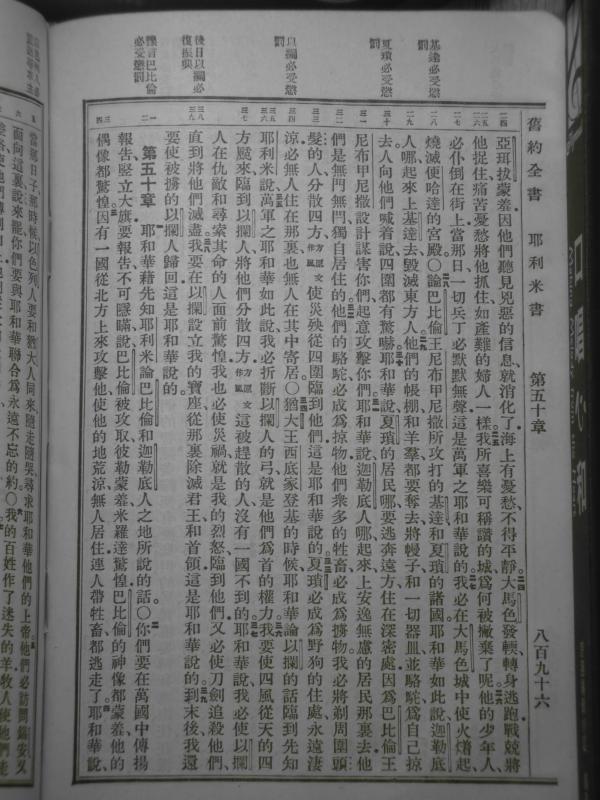 舊約全書　耶利米書　第五十章　八百九十六
基達必受懲罰
夏瑣必受懲罰
以攔必受懲罰
後日以攔必復振興
豫言巴比倫必受懲罰
亞珥拔蒙羞因他們聽見兇惡的信息就消化了海上有憂愁不得平靜大馬色發輭轉身逃跑戰兢將
他捉住痛苦憂愁將他抓住如產難的婦人一樣我所喜樂可稱讚的城爲何被撇棄了呢他的少年人
必仆倒在街上當那日一切兵丁必默默無聲這是萬軍之耶和華說的我必在大馬色城中使火燒起
燒滅便哈達的宮殿〇論巴比倫王尼布甲尼撒所攻打的基達和夏瑣的諸國耶和華如此說迦勒底
人哪起來上基達去毀滅東方人他們的帳棚和羊羣都要奪去將幔子和一切器皿並駱駝爲自己掠
去人向他們喊着說四圍都有驚嚇耶和華說夏瑣的居民哪要逃奔遠方住在深密處因爲巴比倫王
尼布甲尼撒設計謀害你們起意攻擊你們耶和華說迦勒底人哪起來上安逸無慮的居民那裏去他
們是無門無閂獨自居住的他們的駱駝必成爲掠物他們衆多的牲畜必成爲擄物我必將剃周圍頭
髮的人分散四方方原文作風使災殃從四圍臨到他們這是耶和華說的夏瑣必成爲野狗的住處永遠淒
涼必無人住在那裏也無人在其中寄居〇猶大王西底家登基的時候耶和華論以攔的話臨到先知
耶利米說萬軍之耶和華如此說我必折斷以攔人的弓就是他們爲首的權力我要使四風從天的四
方颳來臨到以攔人將他們分散四方方原文作風這被趕散的人沒有一國不到的耶和華說我必使以攔
人在仇敵和尋索其命的人面前驚惶我也必使災禍就是我的烈怒臨到他們又必使刀劍追殺他們
直到將他們滅盡我要在以攔設立我的寶座從那裏除滅君王和首領這是耶和華說的到末後我還
要使被擄的以攔人歸回這是耶和華說的
第五十章　耶和華藉先知耶利米論巴比倫和迦勒底人之地所說的話〇你們要在萬國中傳揚
報告竪立大旗要報告不可隱瞞說巴比倫被攻取彼勒蒙羞米羅達驚惶巴比倫的神像都蒙羞他的
偶像都驚惶因有一國從北方上來攻擊他使他的地荒涼無人居住連人帶牲畜都逃走了耶和華說
當那日子那時候以色列人要和猶大人同來隨走隨哭尋求耶和華他們的上帝他們必訪問錫安又
面向這裏說來罷你們要與耶和華聯合爲永遠不忘的約〇我的百姓作了迷失的羊牧人使他們
口唱心和